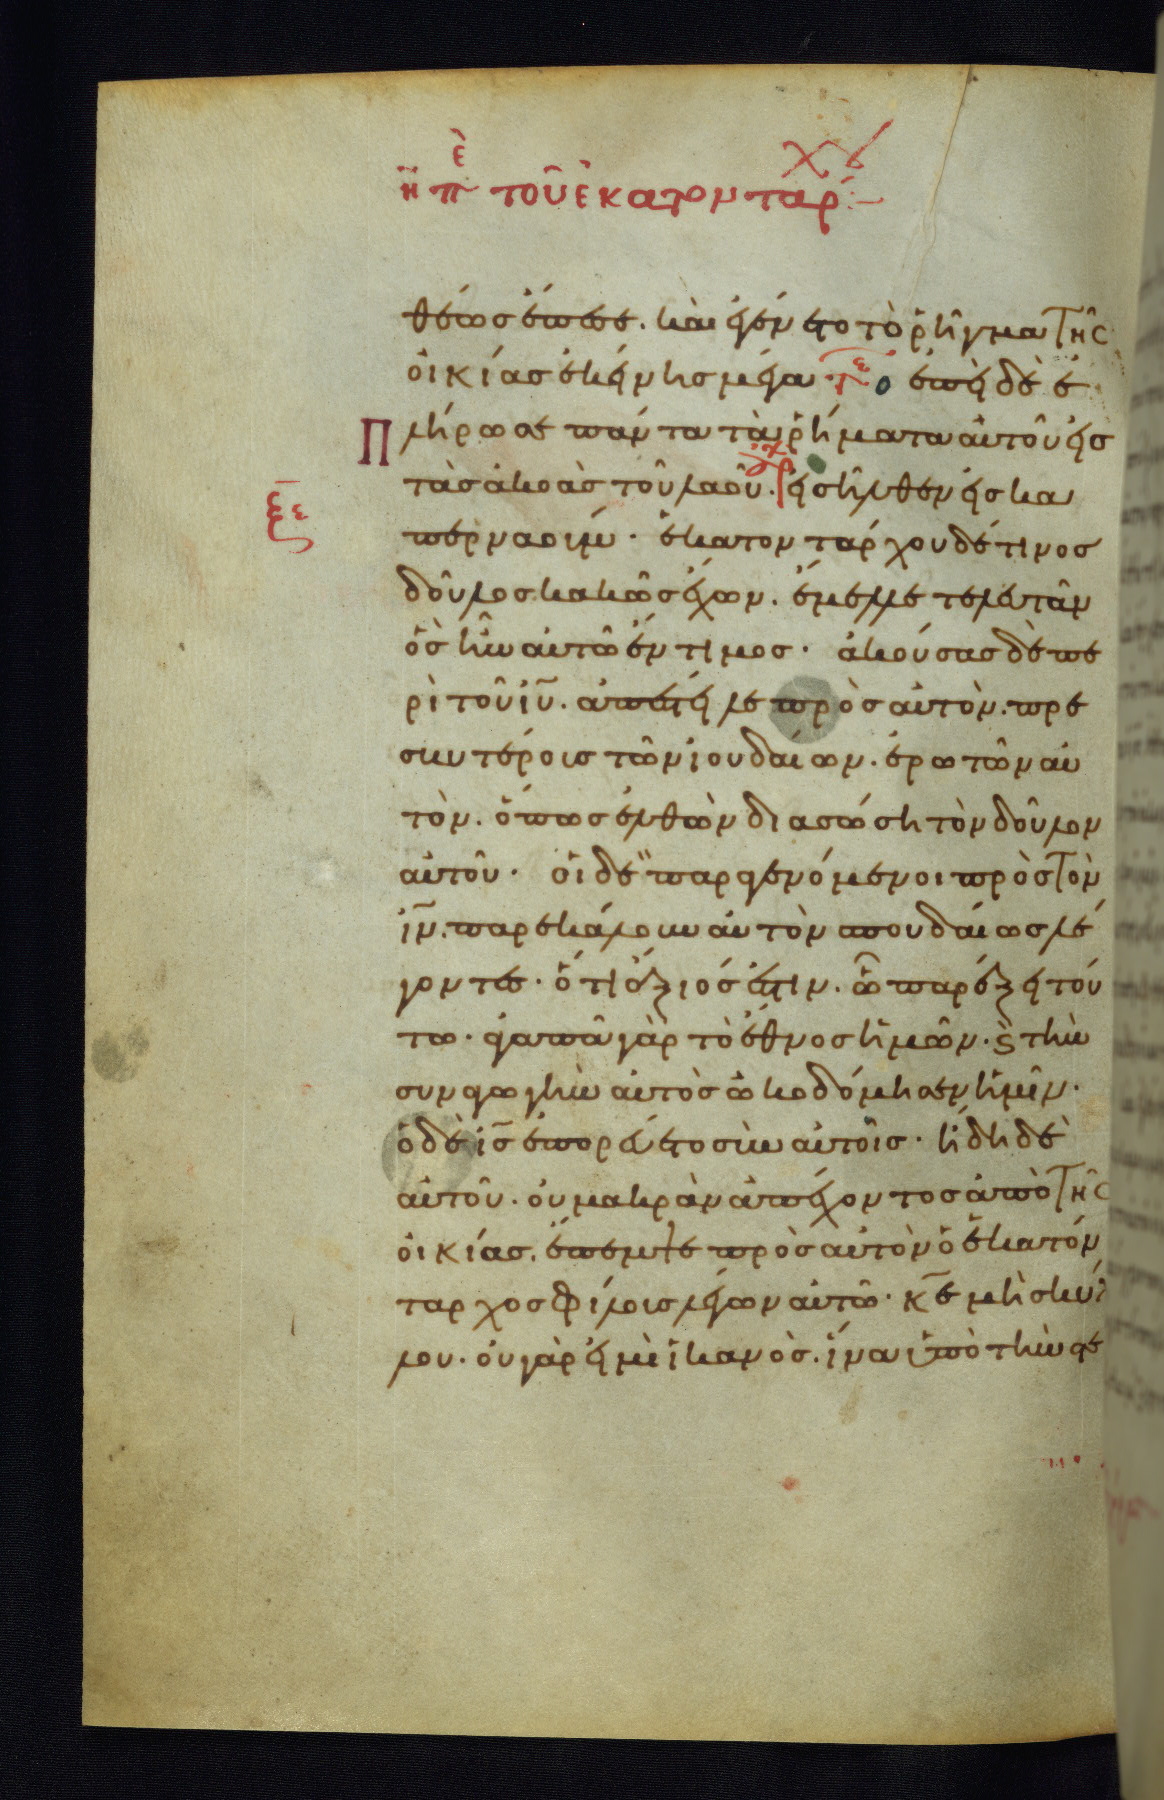 ιη πε τοῦ ἑκατοντάρχου
θέως ἔπεσε. καὶ ἐγένετο τὸ ῥῆγμα τῆς
οἰκίας ἐκείνης μέγα. ἐπεὶ δὲ ἐ
πλήρωσε πάντα τὰ ῥήματα αὐτοῦ εἰς
τὰς ἀκοὰς τοῦ λαοῦ. εἰσῆλθεν εἰς κα
ξε
περναούμ. ἑκατοντάρχου δέ τινος
δοῦλος κακῶς ἔχων. ἔμελλε τελευτᾶν
ὃς ἦν αὐτῶ ἔντιμος. ἀκούσας δὲ πε
ρὶ τοῦ ἰῦ. ἀπέστειλε πρὸς αὐτὸν. πρε
σβυτέροις τῶν ἰουδαίων. ἐρωτῶν αὐ
τὸν. ὅπως ἐλθὼν διασώση τὸν δοῦλον
αὐτοῦ. οἱ δὲ παραγενόμενοι πρὸς τὸν
ἰν. παρεκάλουν αὐτὸν σπουδαίως λέ
γοντες. ὅτι ἄξιός ἐστιν. ὧ παρέξει τού
τω. ἀγαπᾶ γὰρ τὸ ἔθνος ἡμῶν. ϗ τὴν
συναγωγὴν αὐτὸς ὠκοδόμησεν ἡμῖν.
ὁ δὲ ἰς ἐπορεύετο σὺν αὐτοῖς. ἤδη δὲ
αὐτοῦ. οὐ μακρὰν ἀπέχοντος ἀπὸ τῆς
οἰκίας. ἔπεμψε πρὸς αὐτὸν ὁ ἑκατόν
ταρχος φίλους λέγων αὐτῶ. κε μὴ σκύλ
λου. οὐ γὰρ εἰμὶ ἱκανὸς. ἵνα ὑπὸ τὴν στέ